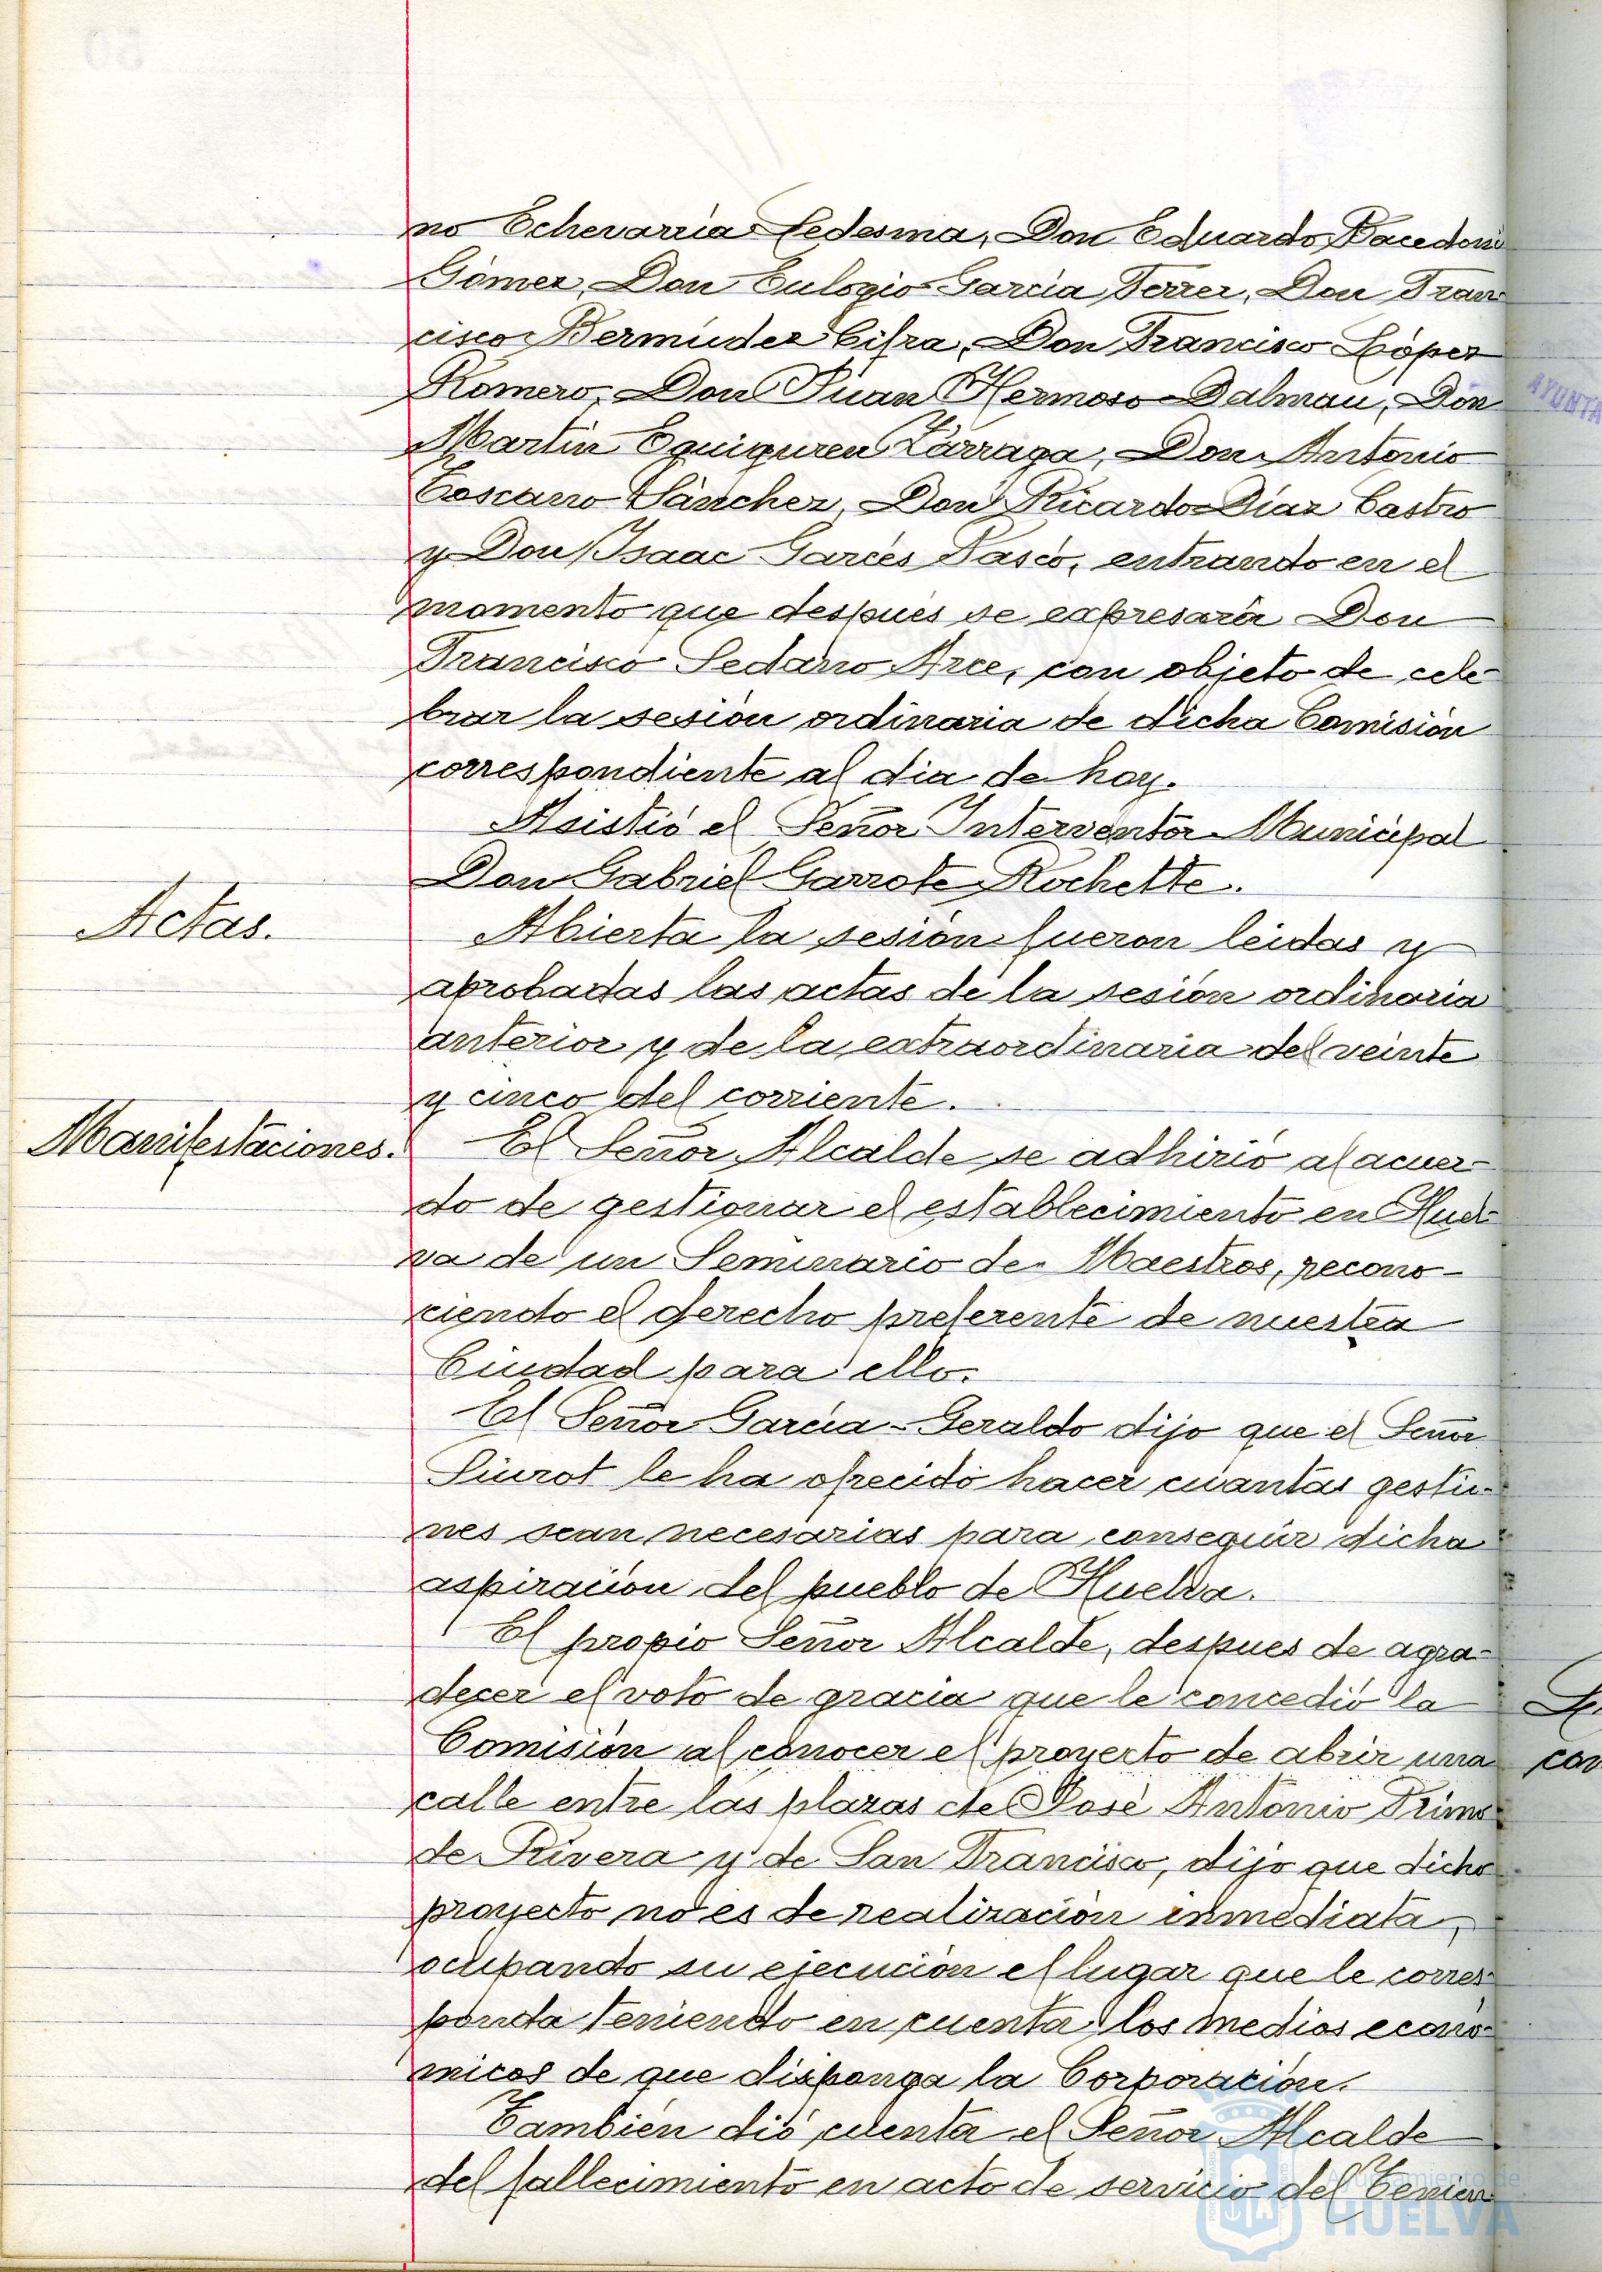 no Echevarría Ledesma, Don Eduardo Bacedoni
Gómez, Don Eulogio García Ferrer, Don Fran-
cisco Bermúdez Cifra, Don Francisco López
Romero, Don Juan Hermoso Dalmau, Don
Martín Eguiguren Zárraga, Don Antonio
Toscano Sánchez, Don Ricardo Díaz Castro
y Don Isaac Garcés Pasco, entrando en el
momento que después se expresará Don
Francisco Sedano Arce, con objeto de cele-
brar la sesión ordinaria de dicha Comisión
correspondiente al dia de hoy.
Asistió el Señor Interventor Municipal
Don Gabriel Garrote Rochette.
Actas.
Abierta la sesión fueron leidas y
aprobadas las actas de la sesión ordinaria
anterior y de la extraordinaria del veinte
y cinco del corriente.
Manifestaciones.
El Señor Alcalde se adhirió al acuer-
do de gestionar el establecimiento en Huel-
va de un Seminario de Maestros, recono-
ciendo el derecho preferente de nuestra
Ciudad para ello.
El Señor García-Geraldo dijo que el Señor
Siurot le ha ofrecido hacer cuantas gestio-
nes sean necesarias para conseguir dicha
aspiración del pueblo de Huelva.
El propio Señor Alcalde, despues de agra-
decer el voto de gracia que le concedió la
Comisión al conocer el proyecto de abrir una
calle entre las plazas de José Antonio Primo
de Rivera y de San Francisco, dijo que dicho
proyecto no es de realización inmediata,
ocupando su ejecución el lugar que le corres-
ponda teniendo en cuenta los medios econó-
micos de que disponga la Corporación.
También dió cuenta el Señor Alcalde
del fallecimiento en acto de servicio del Tenien-
AYUNTA
con
Ayuntamiento de
HUELVA